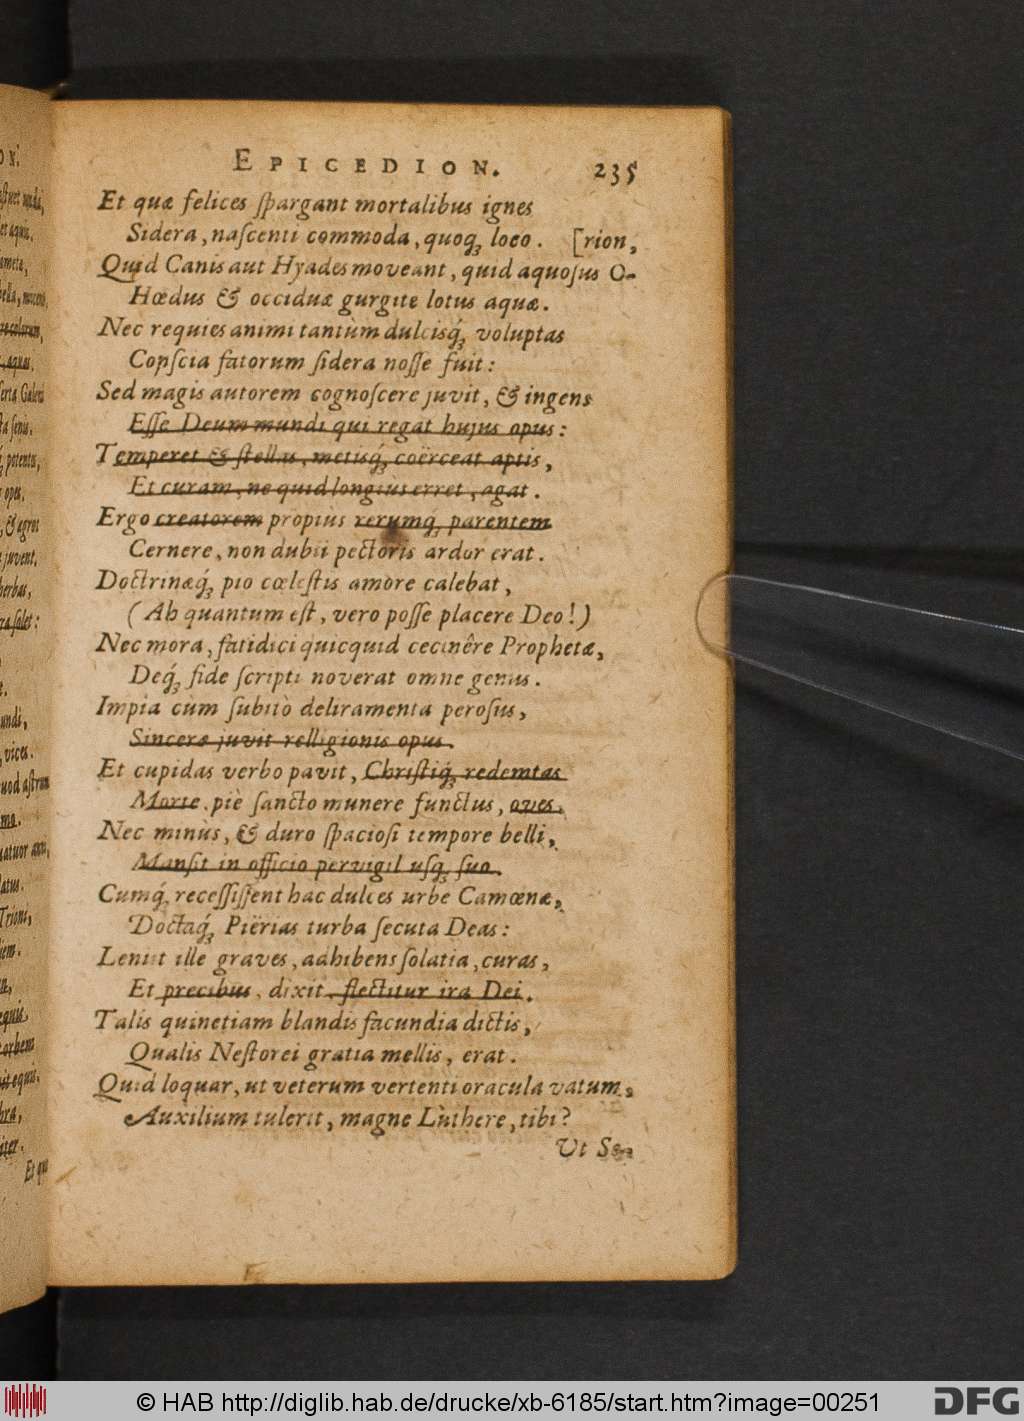 EPICEDION. 235
Et quæ felices ſpargant mortalibus ignes
Sidera, naſcenti commoda, quoq́; loco. [rion,
Quid Canis aut Hyades moveant, quid aquoſus O-
Hœdus & occiduæ gurgite lotus aquæ.
Nec requies animi tantùm dulcisq́; voluptas
Conſcia fatorum ſidera noſſe fuit:
Sed magis autorem cognoſcere juvit, & ingens
Eſſe Deum mundi qui regat hujus opus:
Temperet & ſtellas, metisq́; coërceat aptis,
Et curam, ne quid longiùs erret, agat.
Ergo creatorem propiùs rerumq́; parentem
Cernere, non dubii pectoris ardor erat.
Doctrinæq́; pio cœleſtis amore calebat,
(Ah quantum eſt, vero poſſe placere Deo!)
Nec mora, fatidici quicquid cecinêre Prophetæ,
Deq́; fide ſcripti noverat omne genus.
Impia cùm ſubitò deliramenta peroſus,
Sinceræ juvit relligionis opus.
Et cupidas verbo pavit, Chriſtiq́; redemtas
Morte, piè ſancto munere functus, oves.
Nec minùs, & duro ſpacioſi tempore belli,
Manſit in officio pervigil uſq; ſuo.
Cumq́; receſſiſſent hac dulces urbe Camœnæ,
Doctaq́; Piërias turba ſecuta Deas:
Leniit ille graves, adhibens ſolatia, curas,
Et precibus, dixit, flectitur ira Dei.
Talis quinetiam blandis facundia dictis,
Qualis Neſtorei gratia mellis, erat.
Quid loquar, ut veterum vertenti oracula vatum,
Auxilium tulerit, magne Luthere, tibi?
Ut Se-
© HAB http://diglib.hab.de/drucke/xb-6185/start.htm?image=00251
DFG